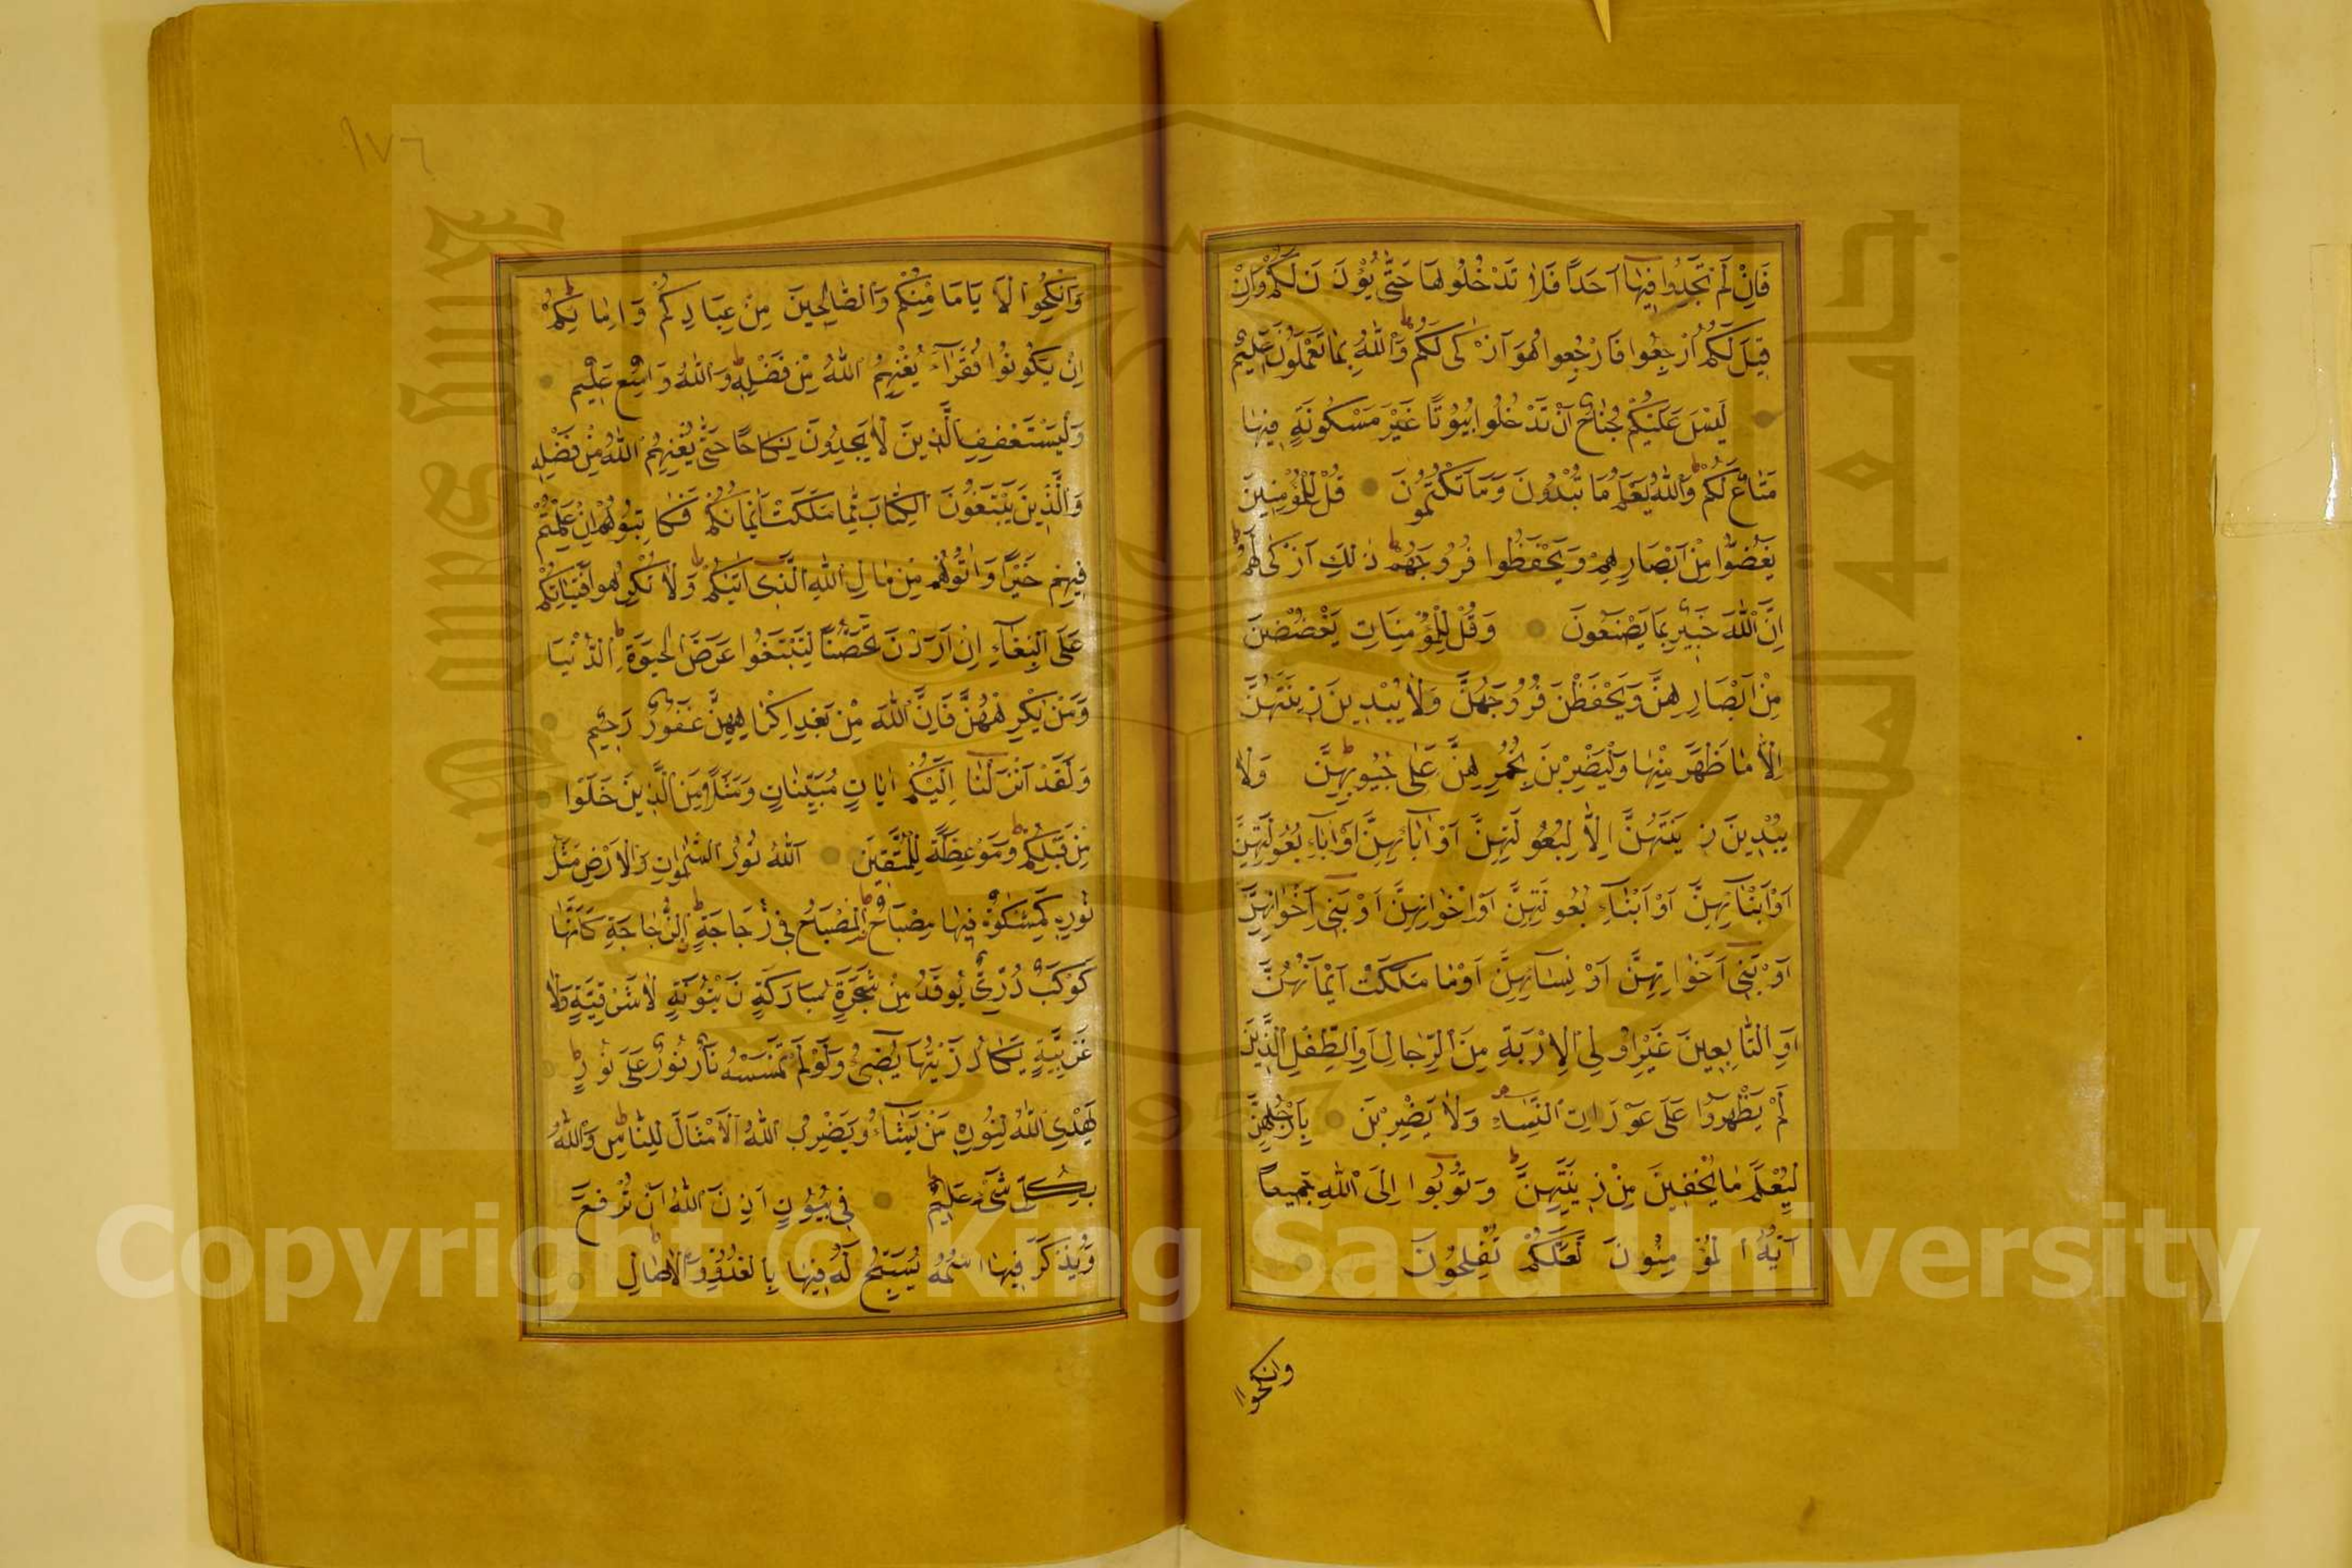 فَاِنْ لَمْ تَجِدُوا فِيهَا اَحَدًا فَلَا تَدْخُلُوهَا حَتّٰى يُؤْذَنَ لَكُمْ وَاِنْ
قِيلَ لَكُمُ ارْجِعُوا فَارْجِعُوا هُوَ اَزْكٰى لَكُمْ وَاللّٰهُ بِمَا تَعْمَلُونَ عَلِيمٌ
لَيْسَ عَلَيْكُمْ جُنَاحٌ اَنْ تَدْخُلُوا بُيُوتًا غَيْرَ مَسْكُونَةٍ فِيهَا
مَتَاعٌ لَكُمْ وَاللّٰهُ يَعْلَمُ مَا تُبْدُونَ وَمَا تَكْتُمُونَ قُلْ لِلْمُؤْمِنِينَ
يَغُضُّوا مِنْ اَبْصَارِهِمْ وَيَحْفَظُوا فُرُوجَهُمْ ذٰلِكَ اَزْكٰى لَهُمْ
اِنَّ اللّٰهَ خَبِيرٌ بِمَا يَصْنَعُونَ وَقُلْ لِلْمُؤْمِنَاتِ يَغْضُضْنَ
مِنْ اَبْصَارِهِنَّ وَيَحْفَظْنَ فُرُوجَهُنَّ وَلَا يُبْدِينَ زِينَتَهُنَّ
اِلَّا مَا ظَهَرَ مِنْهَا وَلْيَضْرِبْنَ بِخُمُرِهِنَّ عَلٰى جُيُوبِهِنَّ وَلَا
يُبْدِينَ زِينَتَهُنَّ اِلَّا لِبُعُولَتِهِنَّ اَوْ اٰبَآئِهِنَّ اَوْ اٰبَآءِ بُعُولَتِهِنَّ
اَوْ اَبْنَآئِهِنَّ اَوْ اَبْنَآءِ بُعُولَتِهِنَّ اَوْ اِخْوَانِهِنَّ اَوْ بَنِى اِخْوَانِهِنَّ
اَوْ بَنِى اَخَوَاتِهِنَّ اَوْ نِسَآئِهِنَّ اَوْ مَا مَلَكَتْ اَيْمَانُهُنَّ
اَوِ التَّابِعِينَ غَيْرِ اُولِى الْاِرْبَةِ مِنَ الرِّجَالِ اَوِ الطِّفْلِ الَّذِينَ
لَمْ يَظْهَرُوا عَلٰى عَوْرَاتِ النِّسَآءِ وَلَا يَضْرِبْنَ بِاَرْجُلِهِنَّ
لِيُعْلَمَ مَا يُخْفِينَ مِنْ زِينَتِهِنَّ وَتُوبُوا اِلَى اللّٰهِ جَمِيعًا
اَيُّهَ الْمُؤْمِنُونَ لَعَلَّكُمْ تُفْلِحُونَ
وانكحوا
١٧٦
وَاَنْكِحُوا الْاَيَامَا مِنْكُمْ وَالصَّالِحِينَ مِنْ عِبَادِكُمْ وَاِمَائِكُمْ
اِنْ يَكُونُوا فُقَرَآءَ يُغْنِهِمُ اللّٰهُ مِنْ فَضْلِهِ وَاللّٰهُ وَاسِعٌ عَلِيمٌ
وَلْيَسْتَعْفِفِ الَّذِينَ لَا يَجِدُونَ نِكَاحًا حَتّٰى يُغْنِيَهُمُ اللّٰهُ مِنْ فَضْلِهِ
وَالَّذِينَ يَبْتَغُونَ الْكِتَابَ مِمَّا مَلَكَتْ اَيْمَانُكُمْ فَكَاتِبُوهُمْ اِنْ عَلِمْتُمْ
فِيهِمْ خَيْرًا وَاٰتُوهُمْ مِنْ مَالِ اللّٰهِ الَّذِى اٰتٰيكُمْ وَلَا تُكْرِهُوا فَتَيَاتِكُمْ
عَلَى الْبِغَآءِ اِنْ اَرَدْنَ تَحَصُّنًا لِتَبْتَغُوا عَرَضَ الْحَيٰوةِ الدُّنْيَا
وَمَنْ يُكْرِهْهُنَّ فَاِنَّ اللّٰهَ مِنْ بَعْدِ اِكْرَاهِهِنَّ غَفُورٌ رَحِيمٌ
وَلَقَدْ اَنْزَلْنَا اِلَيْكُمْ اٰيَاتٍ مُبَيِّنَاتٍ وَمَثَلًا مِنَ الَّذِينَ خَلَوْا
مِنْ قَبْلِكُمْ وَمَوْعِظَةً لِلْمُتَّقِينَ اَللّٰهُ نُورُ السَّمٰوَاتِ وَالْاَرْضِ مَثَلُ
نُورِهِ كَمِشْكٰوةٍ فِيهَا مِصْبَاحٌ اَلْمِصْبَاحُ فِى زُجَاجَةٍ اَلزُّجَاجَةُ كَاَنَّهَا
كَوْكَبٌ دُرِّىٌّ يُوقَدُ مِنْ شَجَرَةٍ مُبَارَكَةٍ زَيْتُونَةٍ لَا شَرْقِيَّةٍ وَلَا
غَرْبِيَّةٍ يَكَادُ زَيْتُهَا يُضِىءُ وَلَوْ لَمْ تَمْسَسْهُ نَارٌ نُورٌ عَلٰى نُورٍ
يَهْدِى اللّٰهُ لِنُورِهِ مَنْ يَشَآءُ وَيَضْرِبُ اللّٰهُ الْاَمْثَالَ لِلنَّاسِ وَاللّٰهُ
بِكُلِّ شَىْءٍ عَلِيمٌ فِى بُيُوتٍ اَذِنَ اللّٰهُ اَنْ تُرْفَعَ
وَيُذْكَرَ فِيهَا اسْمُهُ يُسَبِّحُ لَهُ فِيهَا بِالْغُدُوِّ وَالْاٰصَالِ
King Saud University
جامعة الملك
1957
Copyright © King Saud University